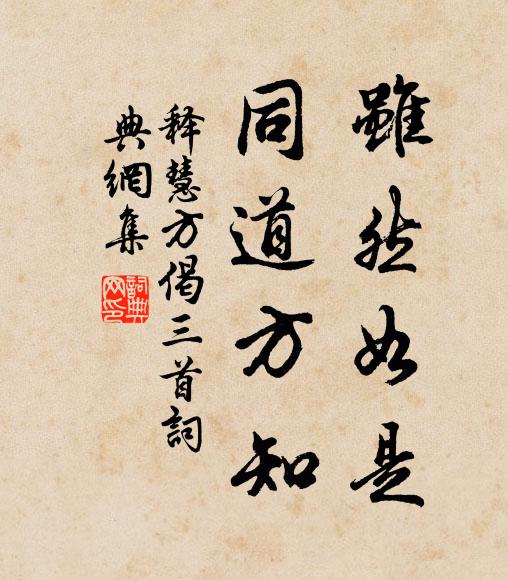 雖然如是
同道方知
释慧方偈三首詞
典網集
詞典网印